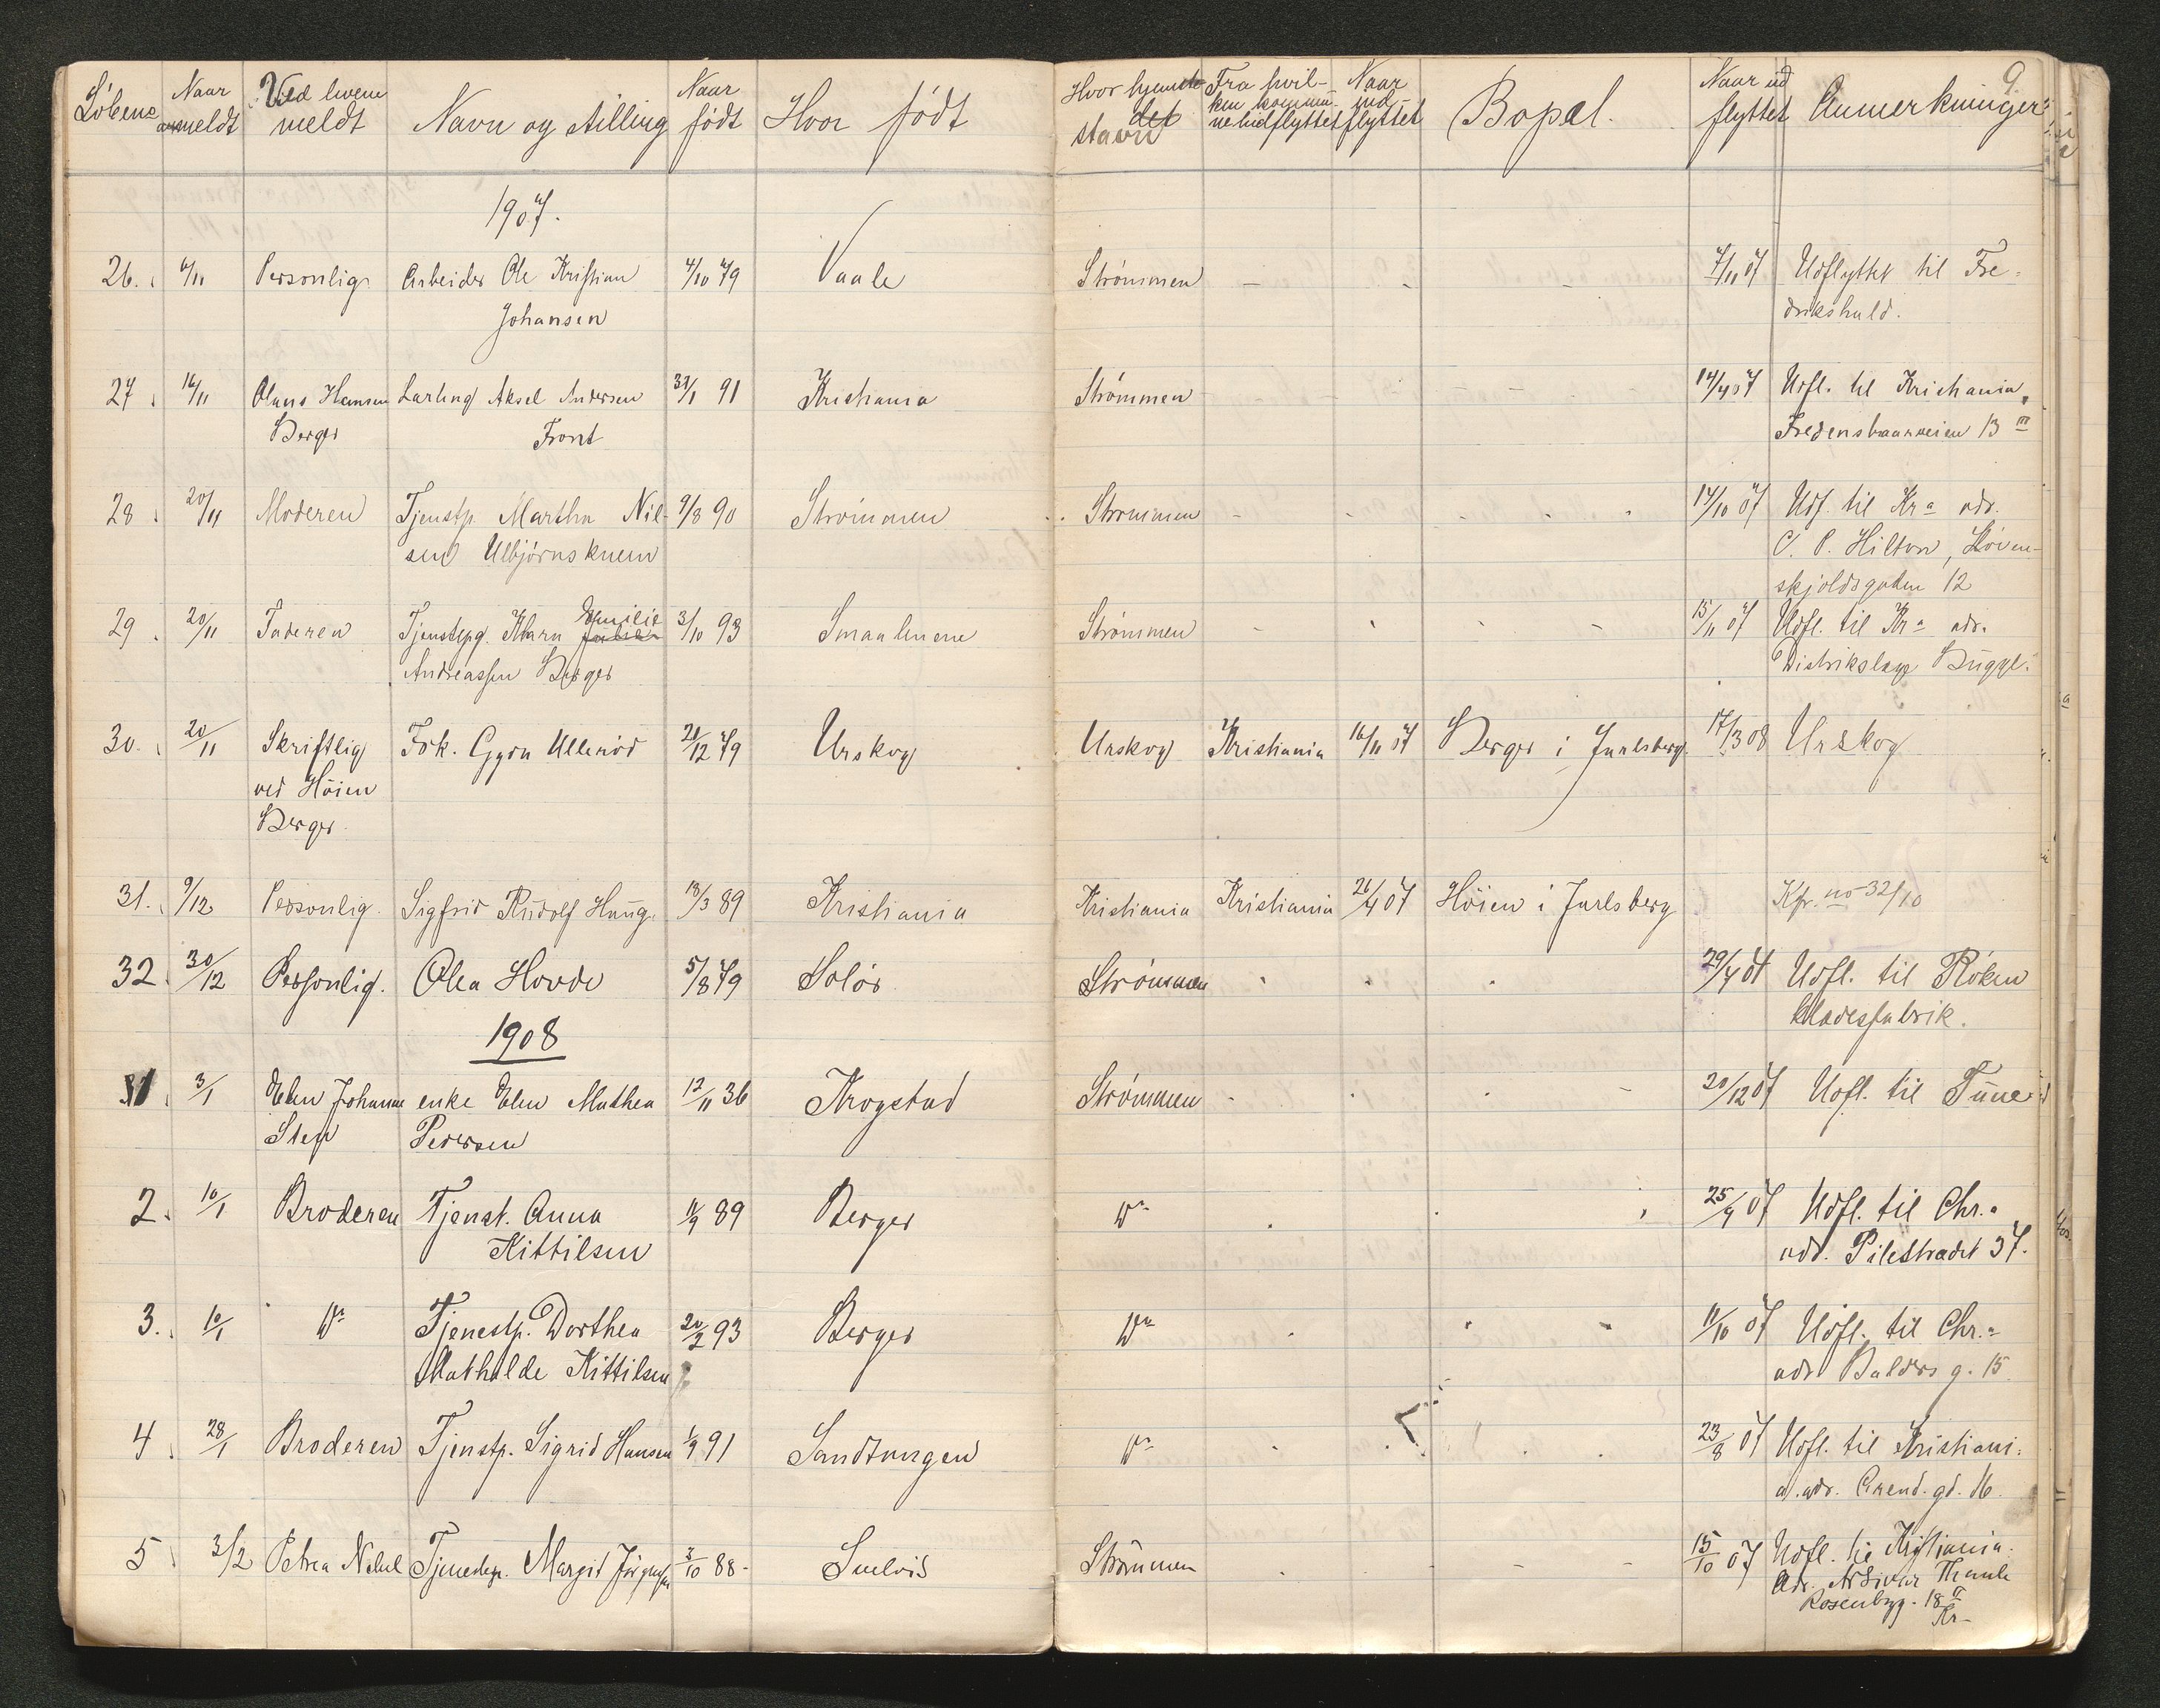 Naar Ved hvem Naar
Löbene anmeldt meldt Navn og stilling födt Hvor födt
Hvor hjemme- Fra hvil- Naar Naar ud 9
det ken kommu- ind- Bopæl. flyttet Anmerkninger
stavn ne hidflyttet flyttet
1907.
26. 6/11 Personlig Arbeider Ole Kristian 4/10 79 Vaale Strömmen - - - 7/11 07 Udflyttet til Fre-
Johansen drikshald.
27. 16/11 Olaus Hansen Lærling Aksel Andersen 91 Kristiania Strömmen - - - 07 Udfl. til Kristiania,
Berger Front 13 III
28. 20/11 Moderen Tjenstp. Martha Nil- 9/8 90 Strömmen Strömmen - - - 14/10 07 Udf. til Kra adr.
sen Ulbjörnsknem C. P. Hilton, Löven-
skjoldsgaden 12
29. 20/11 Faderen Tjenstepg. Klara Emilie 3/10 93 Smaalenene Strömmen - - - 15/11 07 Udfl. til Kra adr.
Andreassen Berger Distrikslæge
30. 20/11 Skriftlig Frk. Gyda Ulleröd 20/12 79 Urskog Urskog Kristiania 16/11 07 Berger i Jarlsberg 17/3 08 Urskog
ved Höien
Berger.
31. 9/12 Personlig. Sigfrid Rudolf Haug. 13/3 89 Kristiania Kristiania Kristiania 26/4 07 Höien i Jarlsberg Kfr. no 32/10
32. 30/12 Personlig. Olea Hovde 5/8 79 Solör Strömmen 29/4 07 Udfl. til Röken
klædesfabrik.
1908
1. 3/1 Elen Johanne enke Elen Mathea 12/11 36 Krogstad Strömmen - 20/12 07 Udfl. til Tune
Sten Pedersen
2. 10/1 Broderen Tjenst. Anna 11/9 89 Berger Do 25/9 07 Udfl. til Chr.a
Kittilsen adr. Pilestrædet 37.
3. 10/1 Do Tjenestp. Dorthea 20/2 93 Berger Do 11/10 07 Udfl. til Chr.a
Mathilde Kittilsen adr Balders g. 15.
4. 28/1 Broderen Tjenstp. Sigrid Hansen 1/9 91 Sandtangen Do 23/8 07 Udfl. til Kristiani-
a. adr. Arend. gd. 16.
5 3/2 Petra Nebel Tjenestep. Margit Jörgensen 3/10 88- Svelvik Strömmen - - 15/10 07 Udfl. til Kristiania.
Adr.
Rosenbgg. 18 II
Kr-